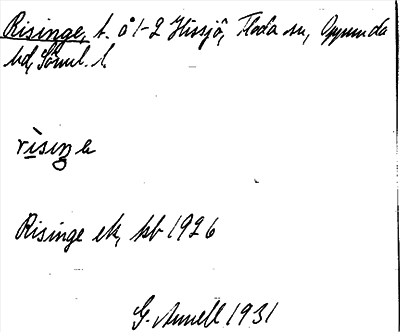 Risinge, t. å 1-2 Hissjö, Floda sn, Oppunda
hd, Söml. l.
rìsiŋe
Risinge ek, kb 1926
G. Annell 1931